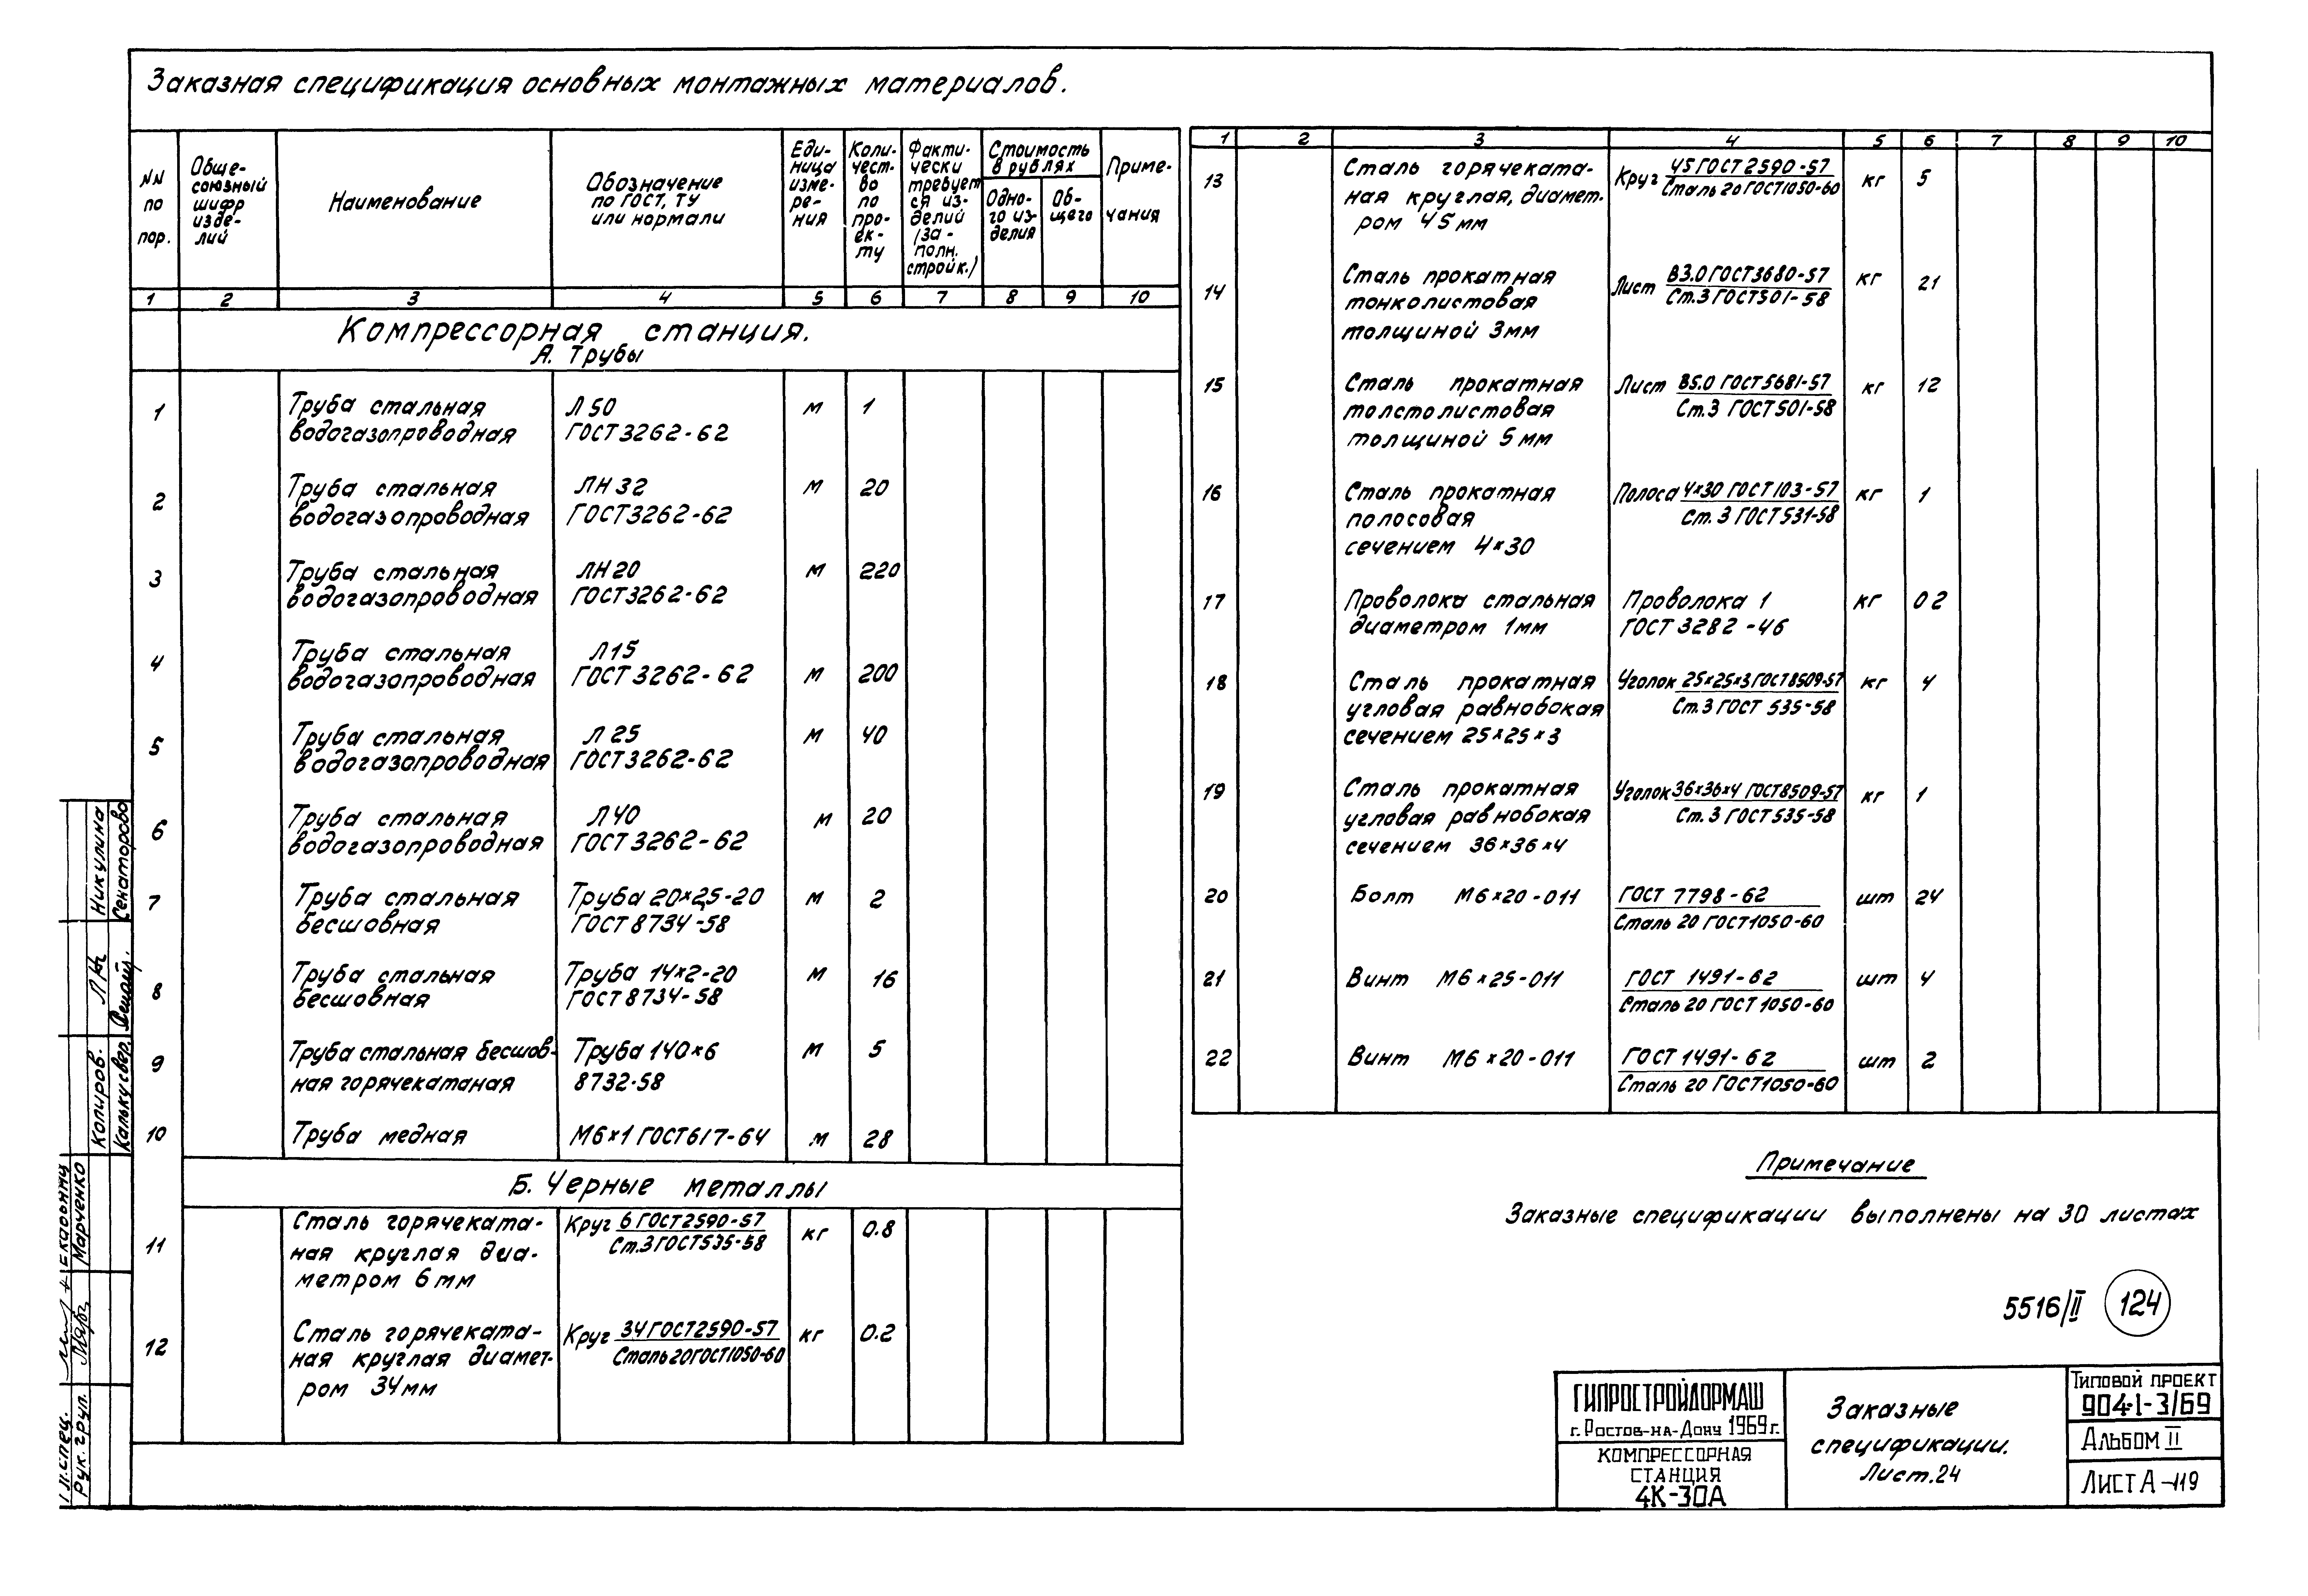 Заказная спецификация основных монтажных материалов.
NN по пор.
Обще-союзный шифр изде-лий
Наименование
Обозначение по ГОСТ, ТУ или нормали
Еди-ница изме-ре-ния
Коли-чест-во по про-ек-ту
Факти-чески требует ся из-делий /за-полн. стройк./
Стоимость в рублях
Одно-го из-делия
Об-щего
Приме-чания
1 2 3 4 5 6 7 8 9 10
Компрессорная станция.
А. Трубы
1 Труба стальная Л 50 м 1
водогазопроводная ГОСТ 3262-62
2 Труба стальная ЛН 32 м 20
водогазопроводная ГОСТ 3262-62
3 Труба стальная ЛН 20 м 220
водогазопроводная ГОСТ 3262-62
4 Труба стальная Л 15
водогазопроводная ГОСТ 3262-62 м 200
5 Труба стальная Л 25 м 40
водогазопроводная ГОСТ 3262-62
6 Труба стальная Л 40 м 20
водогазопроводная ГОСТ 3262-62
7 Труба стальная Труба 20×2,5-20 м 2
бесшовная ГОСТ 8734-58
8 Труба стальная Труба 14×2-20 м 16
бесшовная ГОСТ 8734-58
9 Труба стальная бесшов- Труба 140×6 м 5
ная горячекатаная 8732-58
10 Труба медная М6×1 ГОСТ 617-64 м 28
Б. Черные металлы
11 Сталь горячеката- Круг 6 ГОСТ 2590-57 кг 0.8
ная круглая диа- Ст.3 ГОСТ 535-58
метром 6 мм
12 Сталь горячеката- Круг 34 ГОСТ 2590-57 кг 0.2
ная круглая диамет- Сталь 20 ГОСТ 1050-60
ром 34 мм
1 2 3 4 5 6 7 8 9 10
13 Сталь горячеката- Круг 45 ГОСТ 2590-57 кг 5
ная круглая, диамет. Сталь 20 ГОСТ 1050-60
ром 45 мм
14 Сталь прокатная Лист В3.0 ГОСТ 3680-57 кг 21
тонколистовая Ст.3 ГОСТ 501-58
толщиной 3мм
15 Сталь прокатная Лист В5.0 ГОСТ 5681-57 кг 12
толстолистовая Ст.3 ГОСТ 501-58
толщиной 5 мм
16 Сталь прокатная Полоса 4×30 ГОСТ 103-57 кг 1
полосовая Ст. 3 ГОСТ 531-58
сечением 4×30
17 Проволока стальная Проволока 1 кг 0 2
диаметром 1мм ГОСТ 3282-46
18 Сталь прокатная Уголок 25×25×3 ГОСТ 8509-57 кг 4
угловая равнобокая Ст.3 ГОСТ 535-58
сечением 25×25×3
19 Сталь прокатная Уголок 36×36×4 ГОСТ 8509-57 кг 1
угловая равнобокая Ст. 3 ГОСТ 535-58
сечением 36×36×4
20 Болт М6×20-011 ГОСТ 7798-62 шт 24
Сталь 20 ГОСТ 1050-60
21 Винт М6×25-011 ГОСТ 1491-62 шт 4
Сталь 20 ГОСТ 1050-60
22 Винт М6×20-011 ГОСТ 1491-62 шт 2
Сталь 20 ГОСТ 1050-60
Примечание
Заказные спецификации выполнены на 30 листах
5516/II 124
ГИПРОСТРОЙДОРМАШ
г. Ростов-на-Дону 1969г.
КОМПРЕССОРНАЯ
СТАНЦИЯ
4К-30А
Заказные
спецификации.
Лист.24
Типовой проект
904-1-3/69
Альбом II
Лист А-119
Копиров. Никулина
Кальку свер. Сенаторово
Рук. груп. Марченко